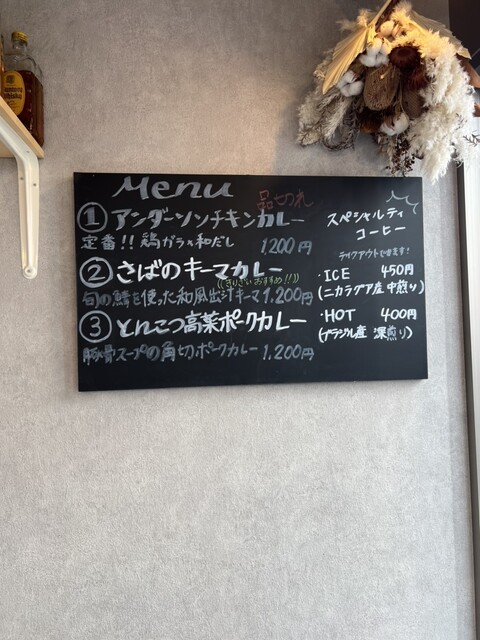 Menu
品切れ
① アンダーソンチキンカレー
定番!! 鶏ガラ×和だし 1200円
② さばのキーマカレー
おすすめ!!
旬の鯖を使った和風出汁キーマ 1,200円
③ とんこつ高菜ポークカレー
豚骨スープの角切ポークカレー 1,200円
スペシャルティ
コーヒー
テイクアウトできます!
・ICE 450円
(ニカラグア産 中煎り)
・HOT 400円
(ブラジル産 深煎り)